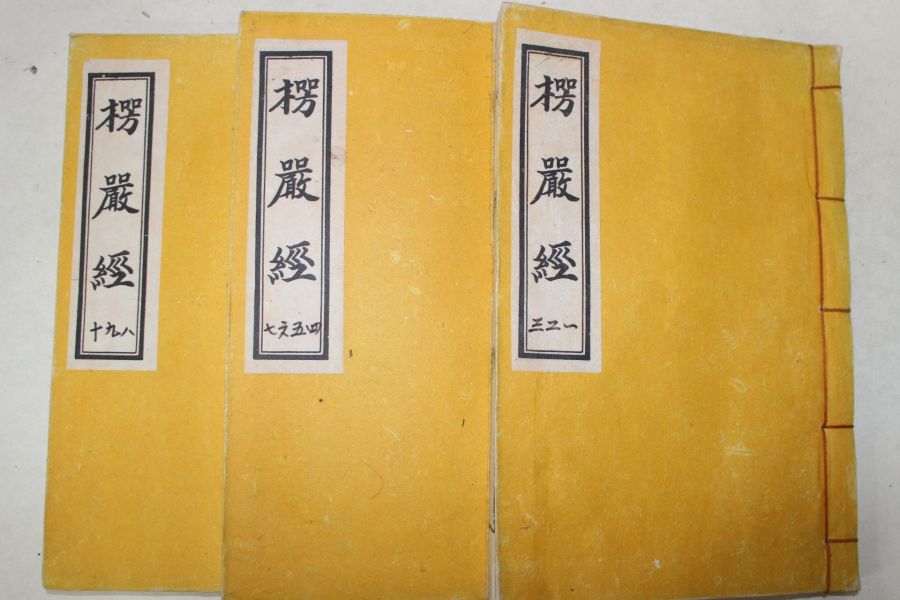 楞嚴經
一二三
楞嚴經
四五六七
楞嚴經
八九十